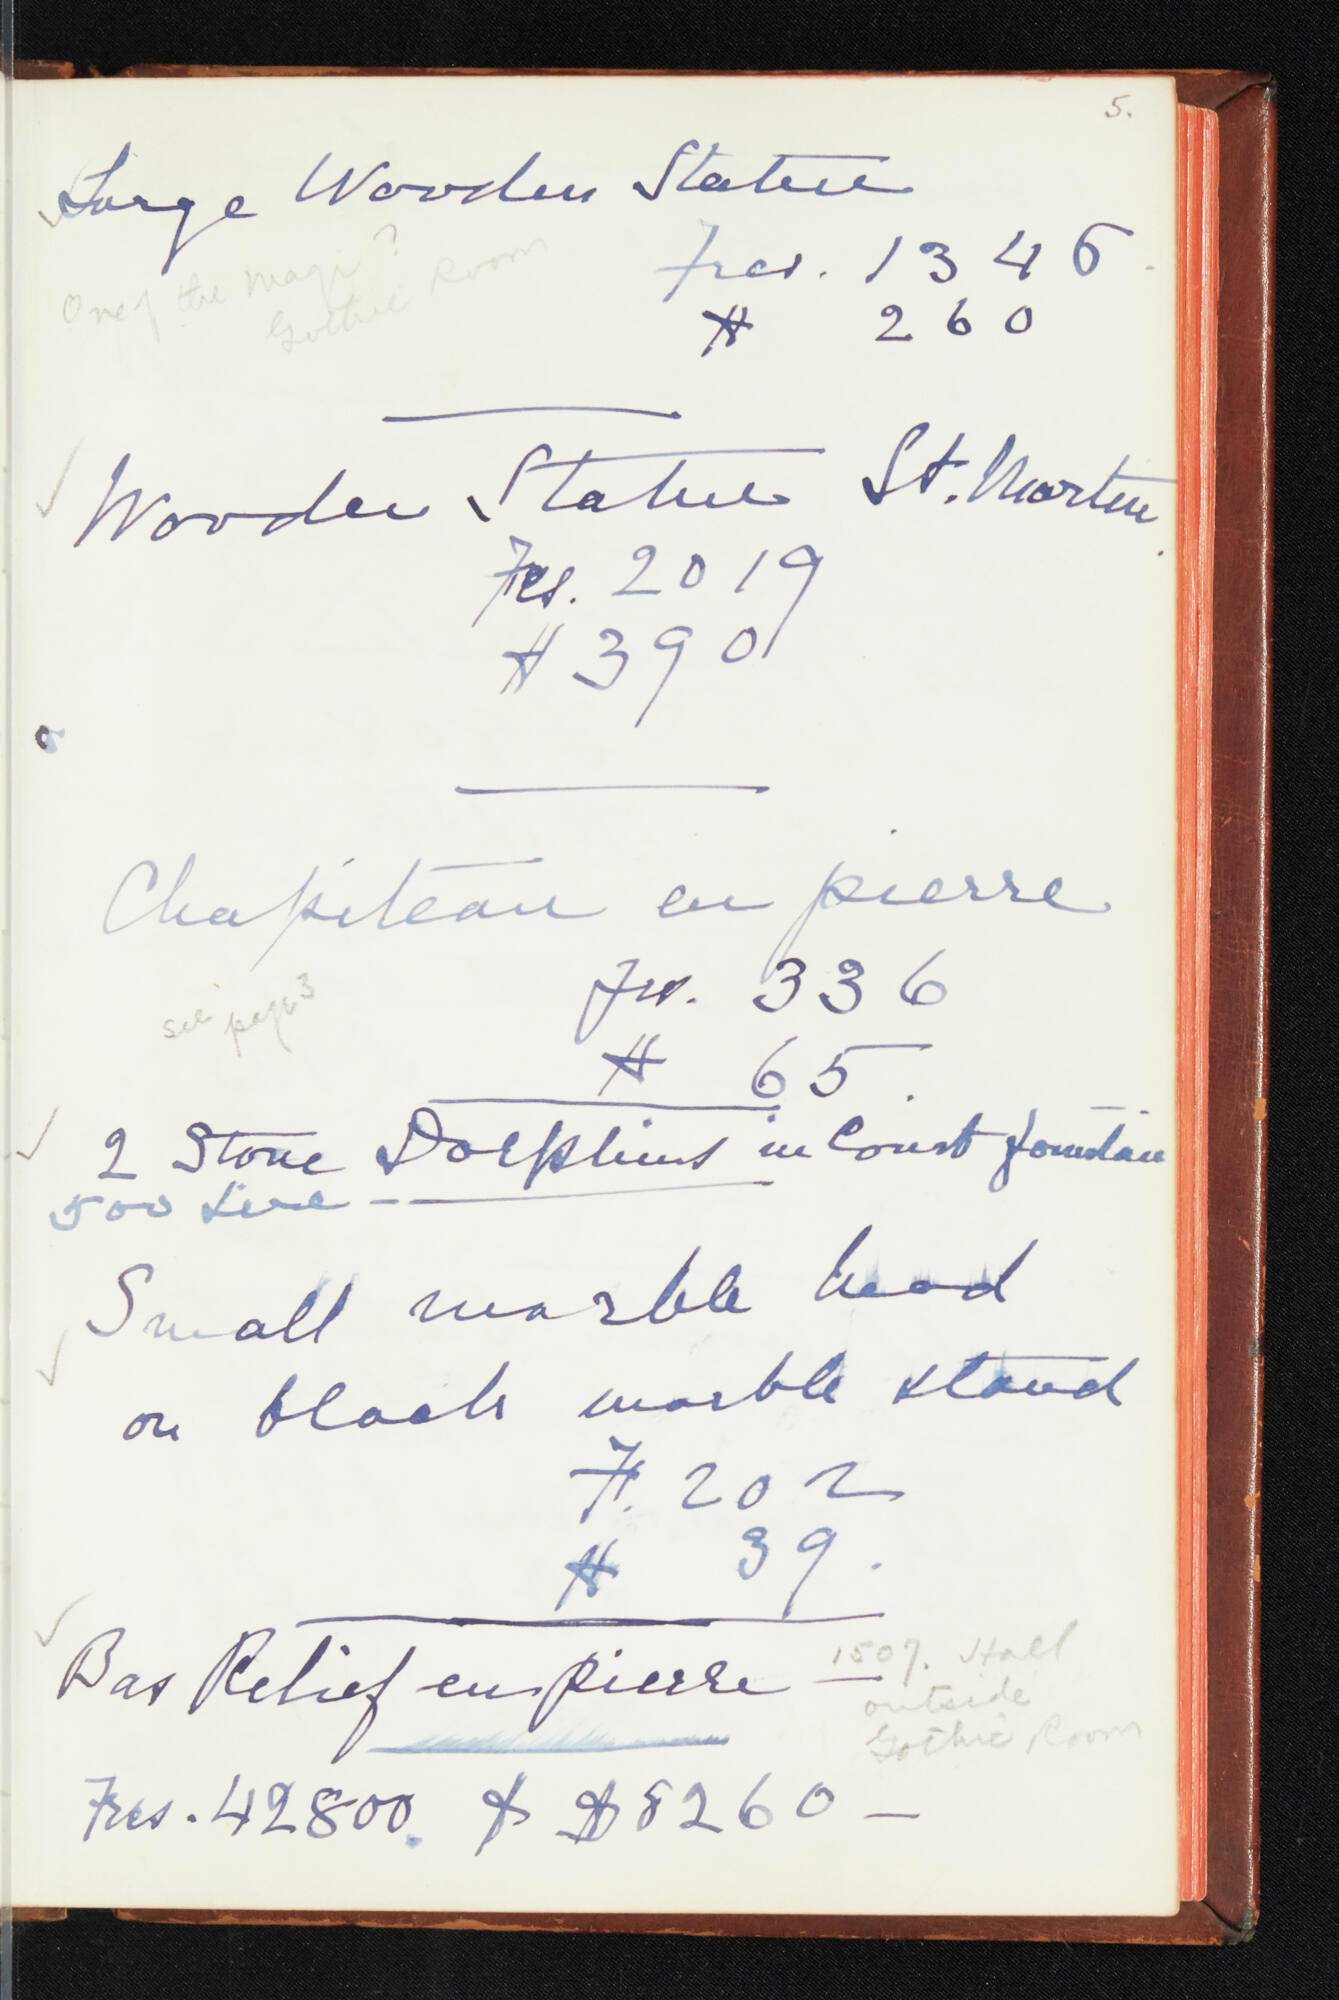 5.
Large Wooden Statue
Frcs. 1346.
One of the Magi?
Gothic Room
$ 260
Wooden Statue St. Martin.
Frcs. 2019
$ 390
Chapiteau en pierre
see page 3
Frs. 336
$ 65.
2 Stone Dolphins in Court fountain
500 Lire —
Small marble head
on black marble stand
Fr. 202
$ 39.
Bas Relief en pierre — 1507. Hall
outside
Gothic Room
Frcs. 42800. $ $8260 —